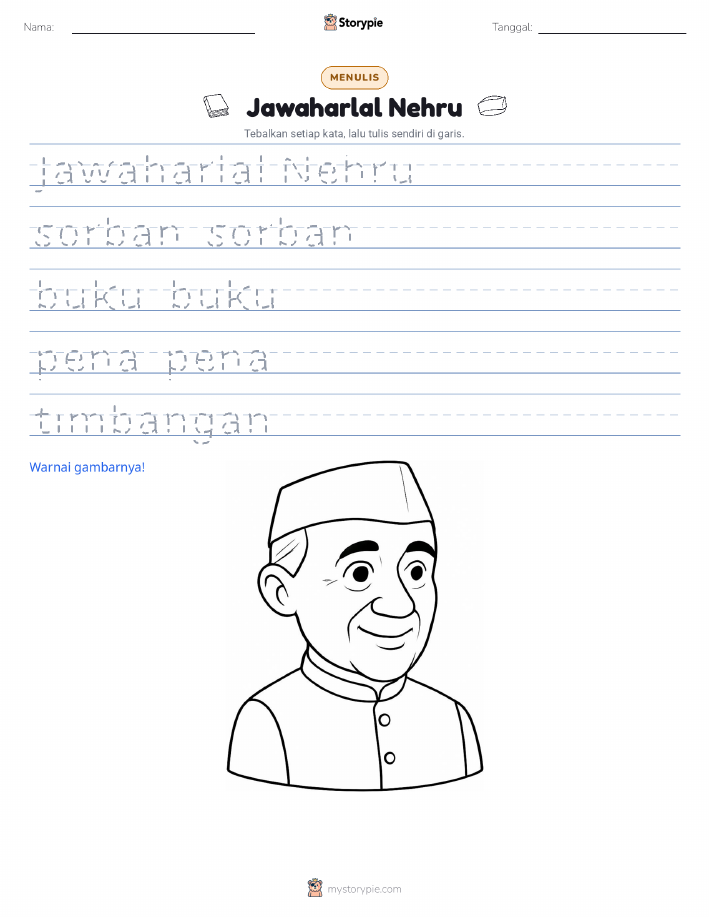 Nama:
Storypie
Tanggal:
MENULIS
Jawaharlal Nehru
Tebalkan setiap kata, lalu tulis sendiri di garis.
Jawaharlal Nehru
sorban sorban
buku buku
pena pena
timbangan
Warnai gambarnya!
mystorypie.com